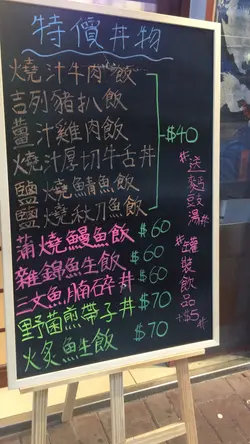 特價丼物
燒汁牛肉飯
吉列豬扒飯
薑汁雞肉飯
燒汁厚切牛舌丼
鹽燒鯖魚飯
鹽燒秋刀魚飯
$40
蒲燒鰻魚飯 $60
雜錦魚生飯 $60
三文魚腩碎丼 $60
野菌煎帶子丼 $70
火炙魚生飯 $70
#送麵豉湯#
#罐裝飲品+$5#